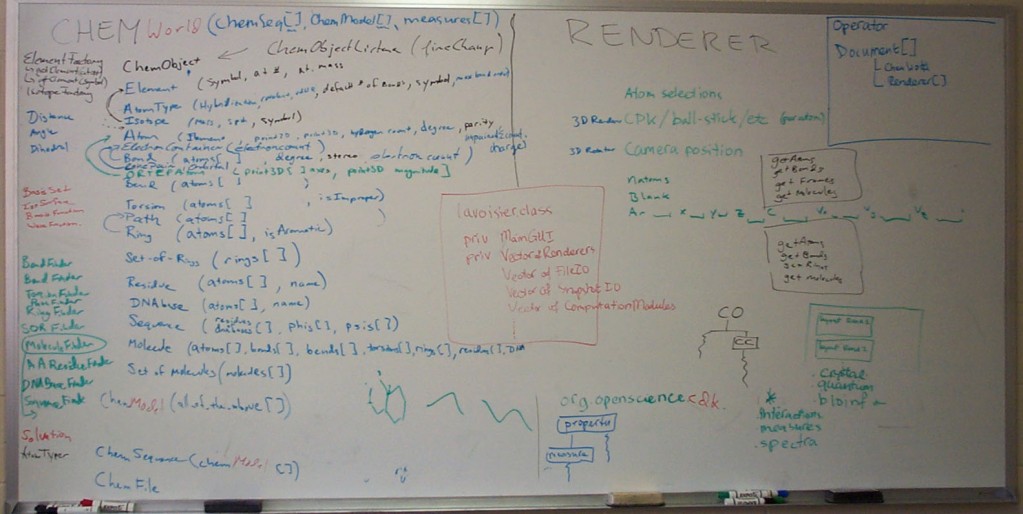 CHEMWorld (ChemSeq[], ChemModel[], measures[])
ChemObjectListener (fireChange)
ChemObject
Element (symbol, at #, at. mass
AtomType (Hybridization, , default # of bonds, symbol, max bond order)
Isotope (mass, spt, symbol)
Atom (Element, point2D, point3D, hydrogen count, degree, parity, charge)
ElectronContainer (electroncount)
Bond (atoms[], degree, stereo, electron count)
ORTEPAtom (point3D[] axes, point3D magnitude]
Bend (atoms[])
Torsion (atoms[], isImproper)
Path (atoms[])
Ring (atoms[], isAromatic)
Set-of-Rings (rings[])
Residue (atoms[], name)
DNAbase (atoms[], name)
Sequence (residues dnabases[], phis[], psis[])
Molecule (atoms[], bonds[], bends[], torsions[], rings[], residues[], DNA
Set of Molecules (molecules[])
ChemModel (all.of.the.above[])
ChemSequence (chemModel[])
ChemFile
Element Factory
Isotope Factory
Distance
Angle
Dihedral
Basis Set
BondFinder
Bend Finder
Torsion Finder
Ring Finder
SOR Finder
Molecule Finder
AA Residue Finder
DNA Base Finder
Sequence Finder
Solvation
AtomTyper
lavoisier class
priv MainGUI
priv Vector of Renderers
Vector of FileIO
Vector of Snapshot IO
Vector of ComputationModules
RENDERER
Atom selections
3D Render CDK/ball-stick/etc (per atom)
3D Render Camera position
natoms
Blank
Ar x y z C Vx Vy Vz
getAtoms
getBonds
getFrames
getMolecules
getAtoms
getBonds
getRings
getMolecules
Operator
Document[]
ChemWorld
Renderer[]
CO
CC
org.openscience.cdk.
property
measure
*
.interaction
measures
.spectra
.crystal
.quantum
.bioinf